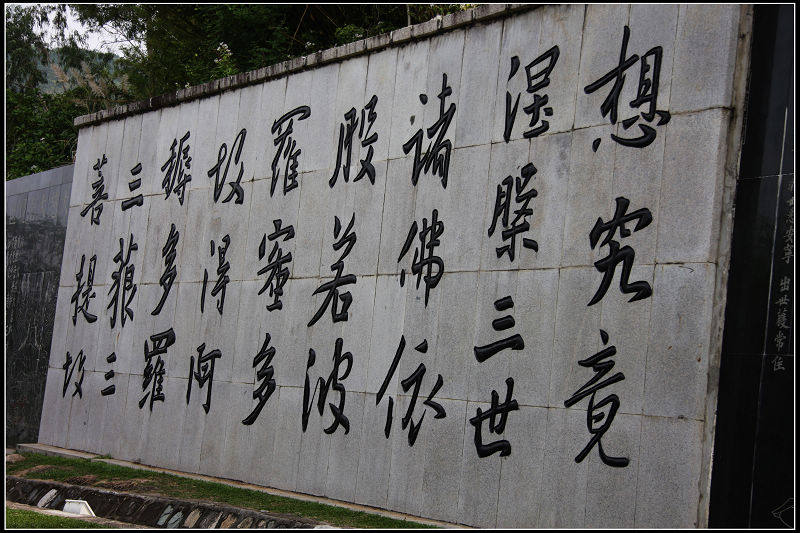 出世護常住
想究竟
涅槃三世
諸佛依
般若波
羅蜜多
故得阿
耨多羅
三藐三
菩提故